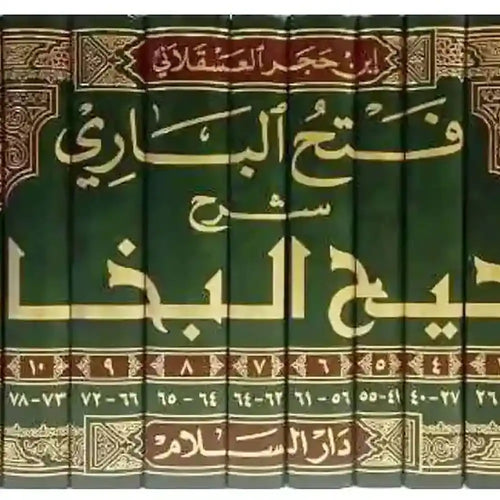 ابن حجر العسقلاني
فَتْحُ الْبَارِي
شرح
حيح البخا
٤ ٥ ٦ ٧ ٨ ٩ ١٠
٢٦ ٢٧-٤٠ ٤١-٥٥ ٥٦-٦١ ٦٢-٦٤ ٦٤-٦٥ ٦٦-٧٢ ٧٣-٧٨
دار السلام